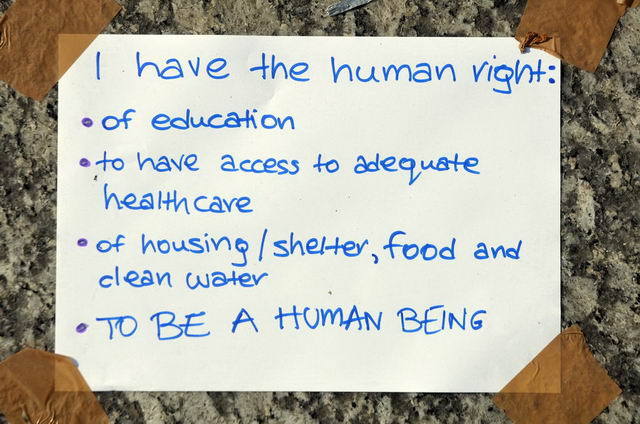 I have the human right:
• of education
• to have access to adequate
healthcare
• of housing/shelter, food and
clean water
• TO BE A HUMAN BEING